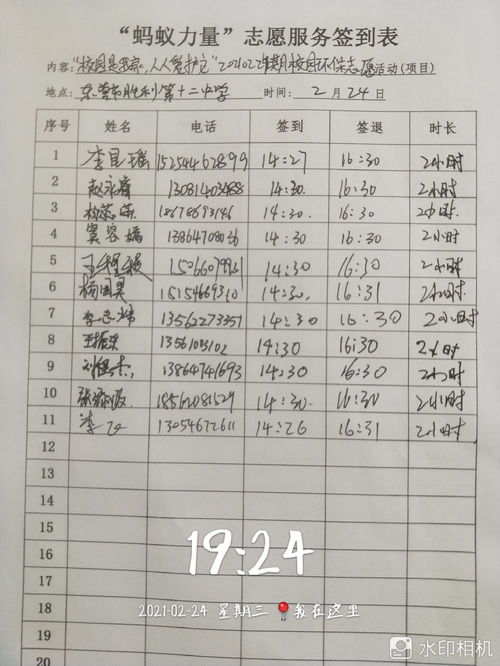 “蚂蚁力量”志愿服务签到表
内容：“校园是我家，人人爱护它”20210224假期校园环保志愿活动（项目）
地点：东营市胜利第十二中学 时间：2月24日
序号 姓名 电话 签到 签退 时长
1 15254462899 14:27 16:30 2小时
2 赵永 13081403488 14:30 16:30 2小时
3 18678693146 14:30 16:30 2小时
4 13864708036 14:30 16:30 2小时
5 王程 14:30 16:30 2小时
6 杨国昊 15154669310 14:30 16:31 2小时
7 李志 13562273351 14:30 16:30 2小时
8 王振东 14:30 16:30 2小时
9 刘 13864741693 14:30 16:30 2小时
10 张 14:30 16:30 2小时
11 李 13054672611 14:26 16:31 2小时
12
13
14
15
16
17
18
19
20
19:24
2021-02-24 星期三 我在这里
水印相机